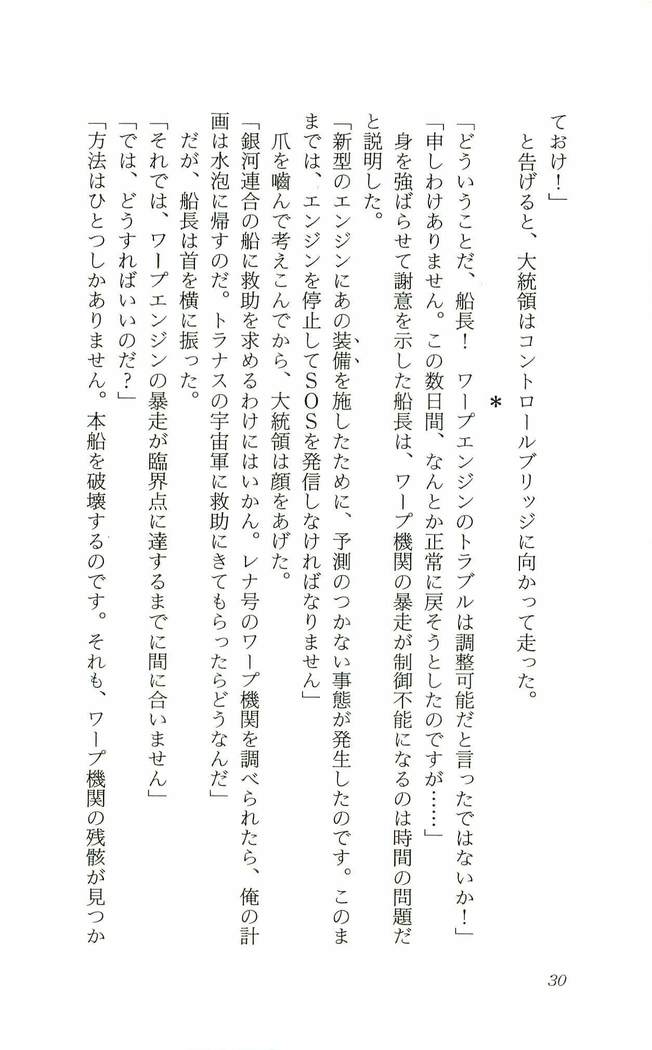 ておけ！」
　と告げると、大統領はコントロールブリッジに向かって走った。
＊
「どういうことだ、船長！　ワープエンジンのトラブルは調整可能だと言ったではないか！」
「申しわけありません。この数日間、なんとか正常に戻そうとしたのですが……」
　身を強ばらせて謝意を示した船長は、ワープ機関の暴走が制御不能になるのは時間の問題だ
と説明した。
「新型のエンジンにあの装備を施したために、予測のつかない事態が発生したのです。このま
までは、エンジンを停止してＳＯＳを発信しなければなりません」
　爪を嚙んで考えこんでから、大統領は顔をあげた。
「銀河連合の船に救助を求めるわけにはいかん。レナ号のワープ機関を調べられたら、俺の計
画は水泡に帰すのだ。トラナスの宇宙軍に救助にきてもらったらどうなんだ」
　だが、船長は首を横に振った。
「それでは、ワープエンジンの暴走が臨界点に達するまでに間に合いません」
「では、どうすればいいのだ？」
「方法はひとつしかありません。本船を破壊するのです。それも、ワープ機関の残骸が見つか
30